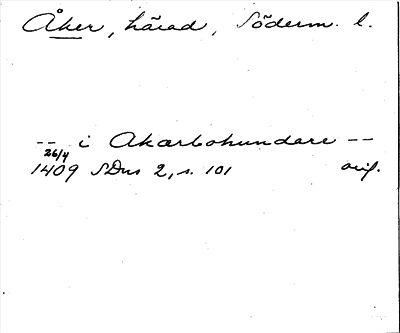 Åker, härad, Söderm. l.
-- i Akarbohundare --
26/4
1409 SDns 2, s. 101 orig.